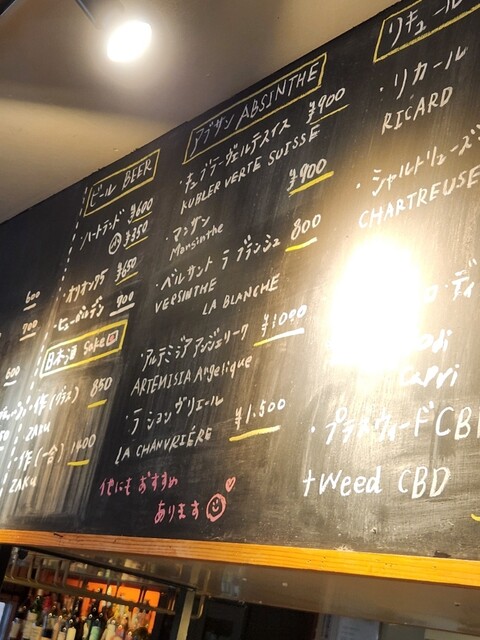 600
700
600
ビール BEER
・ハートランド ¥600
Ⓐ ¥350
・オリオン75 ¥650
・ヒューガルデン 700
日本酒 Sake
作(グラス) 850
ZAKU
・作(一合) 1400
ZAKU
アブサン ABSINTHE
・キュブラーヴェルテスイス ¥900
KUBLER VERTE SUISSE
・マンサン ¥900
Mansinthe
・ベルサント ラ ブランシュ 800
VERSINTHE
LA BLANCHE
・アルテミジア アンジェリーク ¥1000
ARTEMISIA Angelique
・ラ シャンヴリエール ¥1,500
LA CHANVRIÈRE
他にもおすすめ
あります
リキュール
・リカール
RICARD
・シャルトリューズ
CHARTREUSE
ディ
di
Capri
CBD
tweed CBD